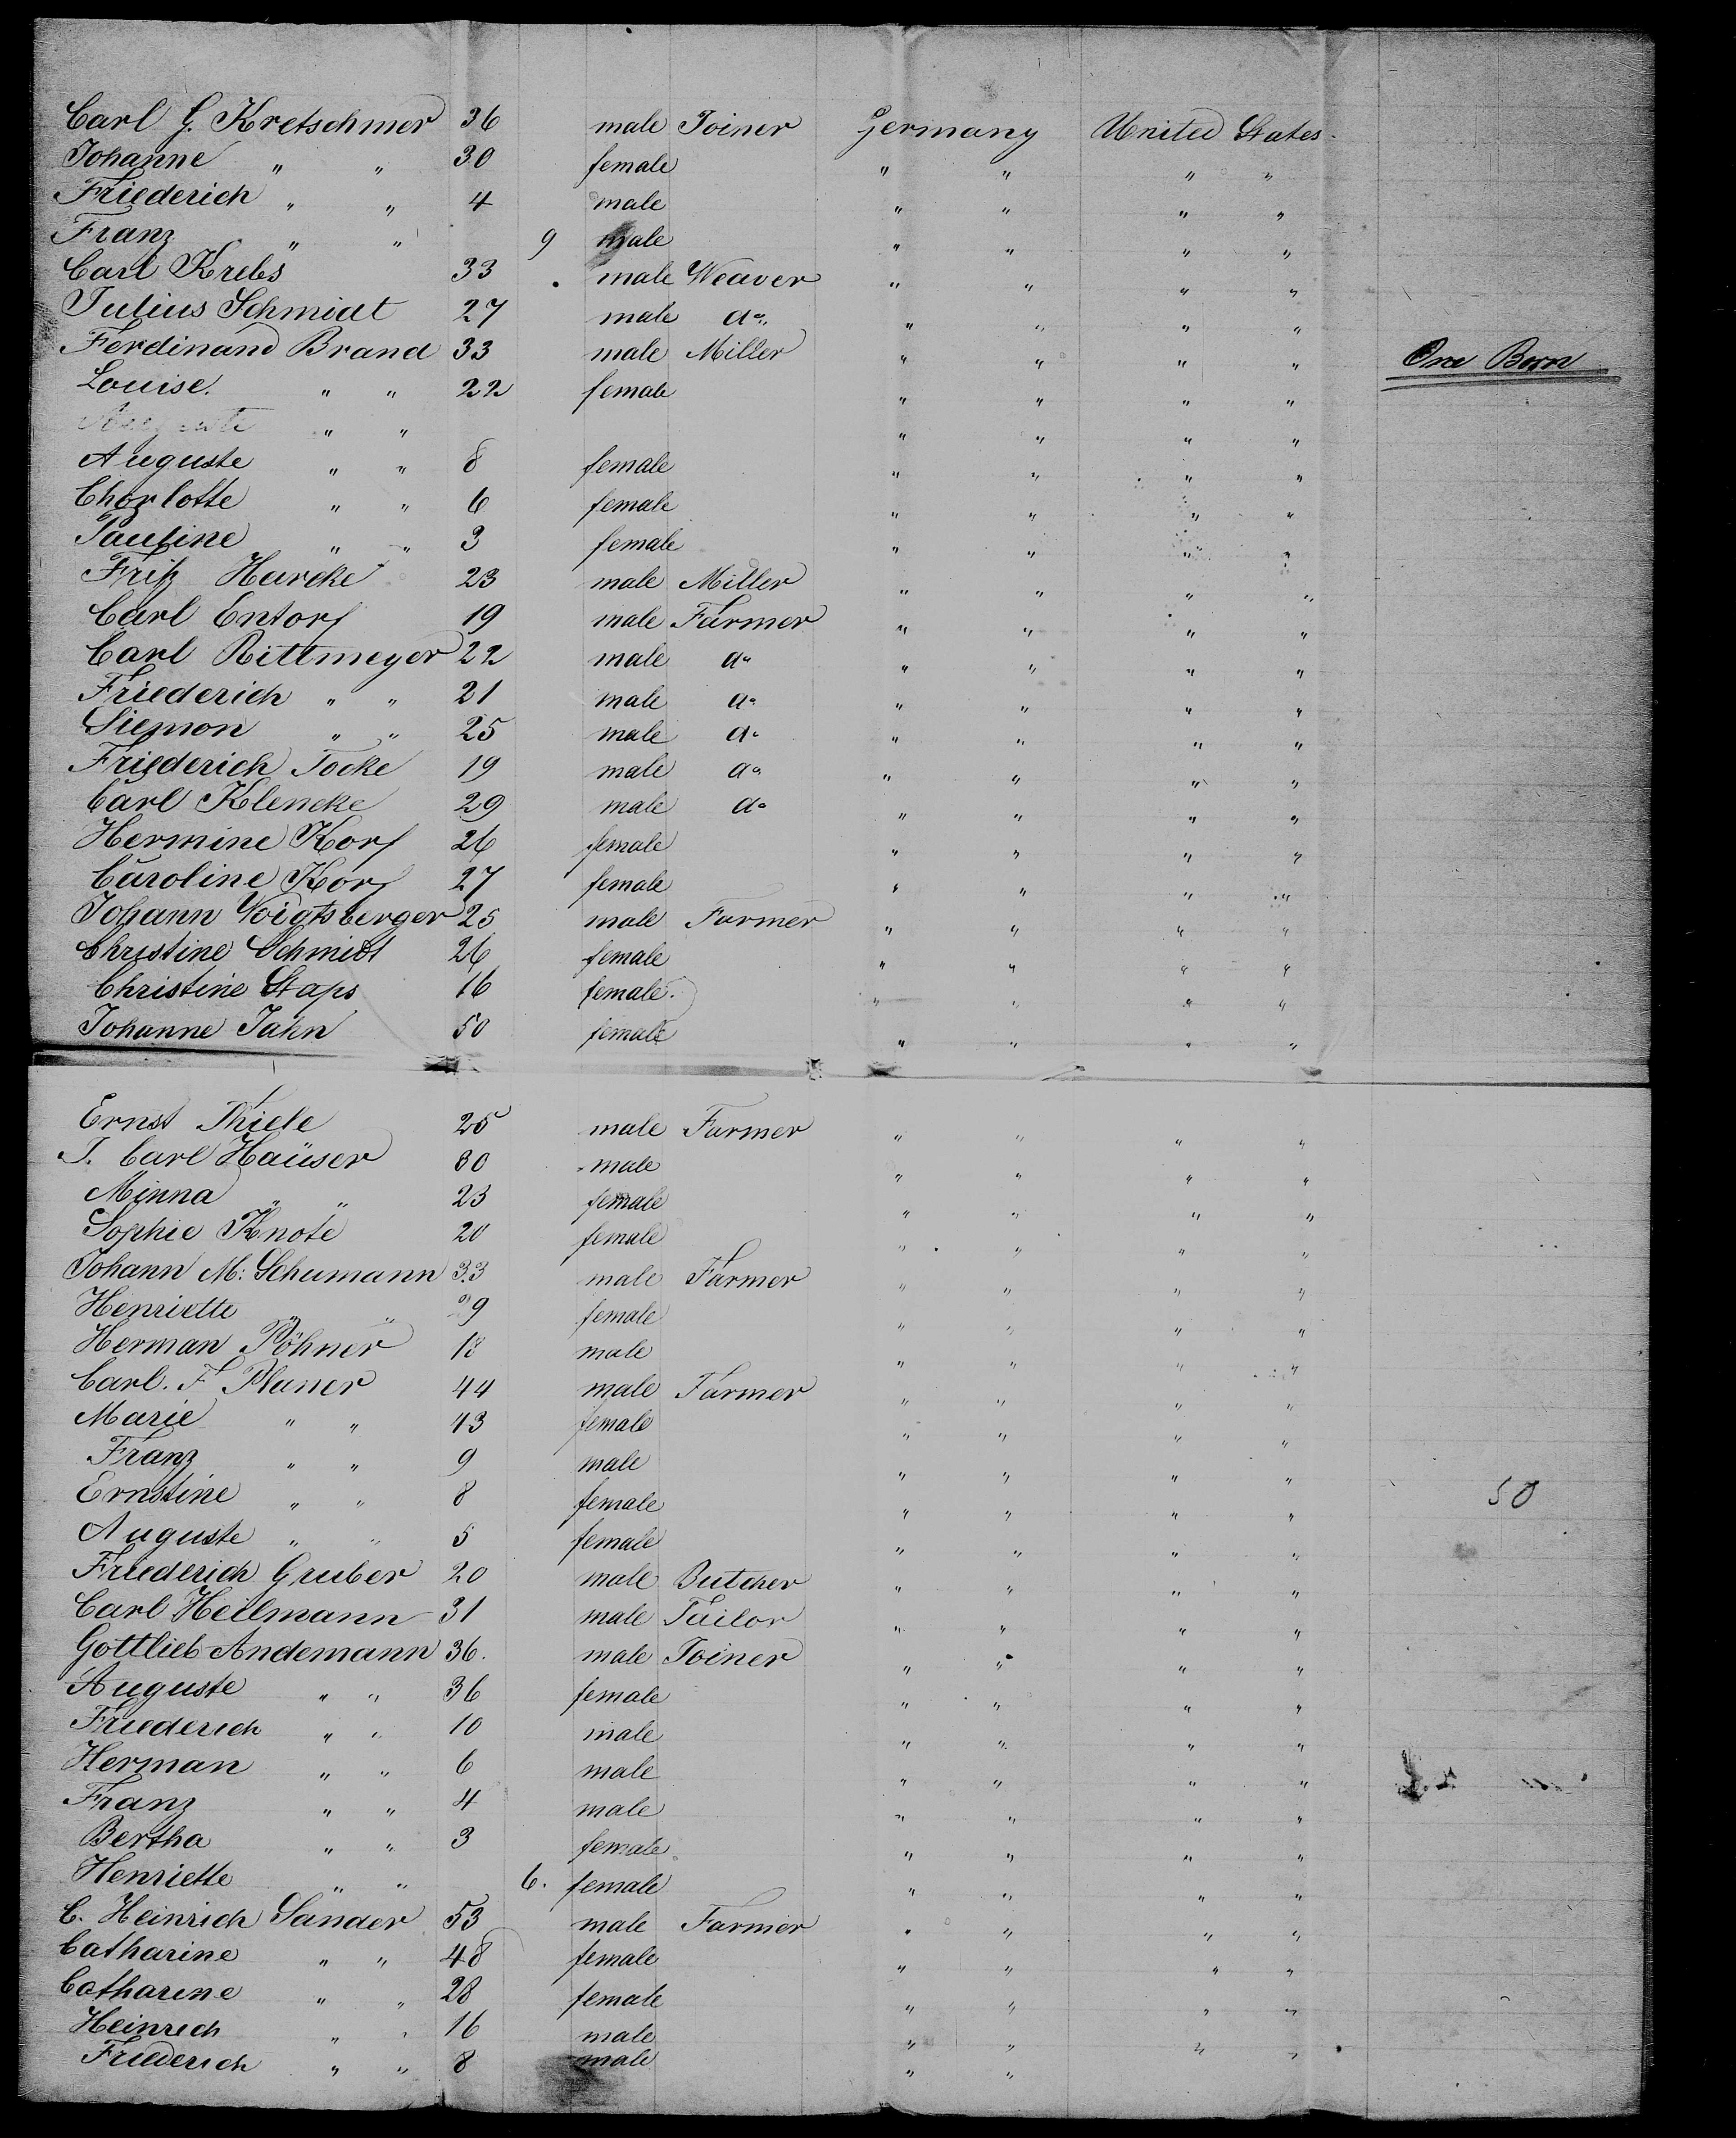 Carl G. Kretschmer 36 male Joiner Germany United States.
Johanne " " 30 female " " " "
Friederich " " 4 male " " " "
Franz " " 9 male " " " "
Carl Krebs 33 male Weaver " " " "
Julius Schmidt 27 male do " " " "
Ferdinand Brand 33 male Miller " " " " One Born
Louise. " " 22 female " " " "
" " " " " "
Auguste " " 8 female " " " "
Chorlotte " " 6 female " " " "
Pauline " " 3 female " " " "
Fritz Harcke 23 male Miller " " " "
Carl Entorf 19 male Farmer " " " "
Carl Rittmeyer 22 male do " " " "
Friederich " " 21 male do " " " "
Siemon " " 25 male do " " " "
Friederich Tocke 19 male do " " " "
Carl Klencke 29 male do " " " "
Hermine Korf 26 female " " " "
Caroline Korf 27 female " " " "
Johann Voigtsberger 25 male Farmer " " " "
Christine Schmidt 26 female " " " "
Christine Staps 16 female. " " " "
Johanne Jahn 50 female " " " "
Ernst Thiele 25 male Farmer " " " "
J. Carl Haüser 30 male " " " "
Minna " " 23 female " " " "
Sophie Knote 20 female " " " "
Johann M: Schumann 33 male Farmer " " " "
Henriette " " 29 female " " " "
Herman Pöhner 18 male " " " "
Carl. F Planer 44 male Farmer " " " "
Marie " " 43 female " " " "
Franz " " 9 male " " " "
Ernstine " " 8 female " " " " 50
Auguste " " 5 female " " " "
Friederich Gruber 20 male Butcher " " " "
Carl Heilmann 31 male Tailor " " " "
Gottlieb Andemann 36. male Joiner " " " "
Auguste " " 36 female " " " "
Friederich " " 10 male " " " "
Herman " " 6 male " " " "
Franz " " 4 male " " " "
Bertha " " 3 female " " " "
Henriette " " 6. female " " " "
C. Heinrich Sander 53 male Farmer " " " "
Catharine " " 48 female " " " "
Catharine " " 28 female " " " "
Heinrich " " 16 male " " " "
Friederich " " 8 male " "